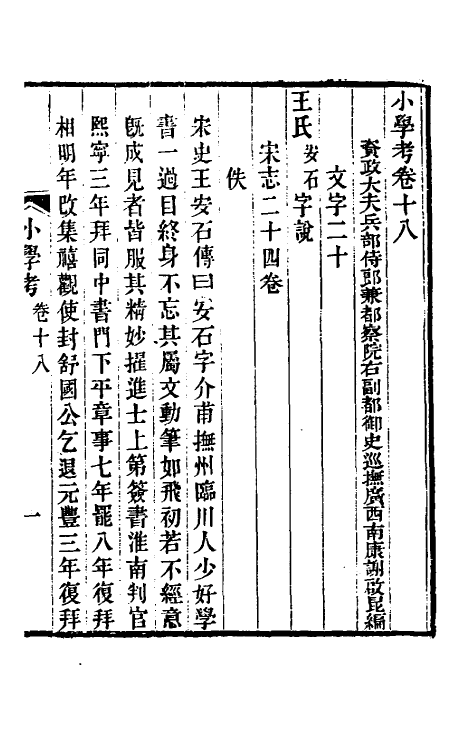 小學考卷十八
資政大夫兵部侍郎兼都察院右副都御史巡撫廣西南康謝啟昆編
文字二十
王氏安石字說
宋志二十四卷
佚
宋史王安石傳曰安石字介甫撫州臨川人少好學
書一過目終身不忘其屬文動筆如飛初若不經意
旣成見者皆服其精妙擢進士上第簽書淮南判官
熙寧三年拜同中書門下平章事七年罷八年復拜
相明年改集禧觀使封舒國公乞退元豐三年復拜
小學考
卷十八
一